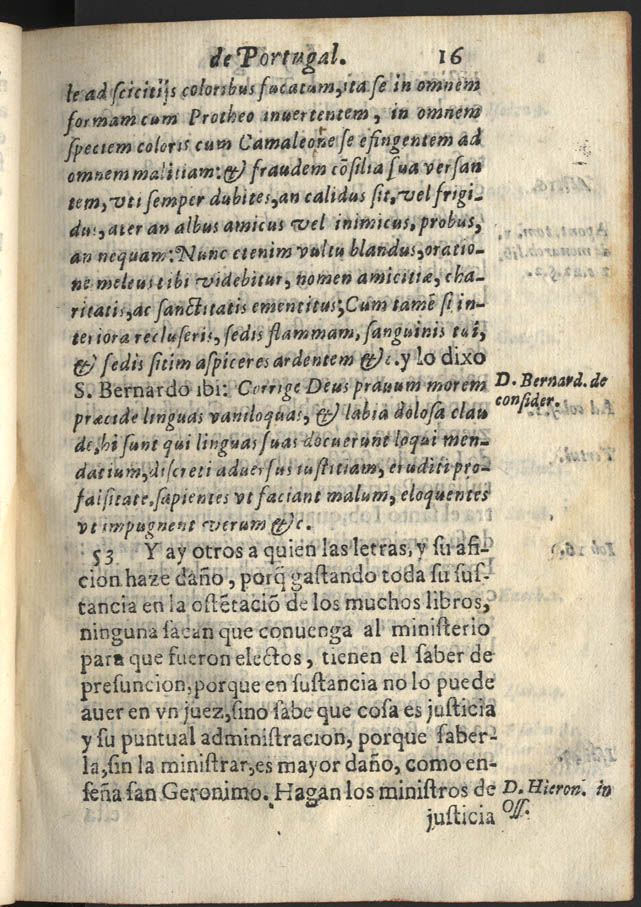 de Portugal. 16
le ad scicitijs coloribus fucatum, ita se in omnem
formam cum Protheo inuertentem, in omnem
speciem coloris cum Camaleone se efingentem ad
omnem malitiam: & fraudem cōsilia sua versan
tem, vti semper dubites, an calidus sit, vel frigi-
dus, ater an albus amicus vel inimicus, probus,
an nequam: Nunc etenim vultu blandus, oratio-
ne meleus tibi videbitur, nomen amicitiæ, cha-
ritatis, ac sanctitatis ementitus; Cum tamē si in-
teriora recluseris, sedis flammam, sanguinis tui,
& sedis sitim aspiceres ardentem &c. y lo dixo
S. Bernardo ibi: Corrige Deus prauum morem
D. Bernard. de
consider.
præcide linguas vaniloquas, & labia dolosa clau
de, hi sunt qui linguas suas docuerunt loqui men-
datium, discreti aduersus iustitiam, eruditi pro-
falsitate, sapientes vt faciant malum, eloquentes
vt impugnent verum &c.
53 Y ay otros a quien las letras, y su afi-
cion haze daño, porq̃ gastando toda su sus-
tancia en la ostētaciō de los muchos libros,
ninguna sacan que conuenga al ministerio
para que fueron electos, tienen el saber de
presuncion, porque en sustancia no lo puede
auer en vn juez, sino sabe que cosa es justicia
y su puntual administracion, porque saber-
la, sin la ministrar, es mayor daño, como en-
seña san Geronimo. Hagan los ministros de
D. Hieron. in
Off.
justicia